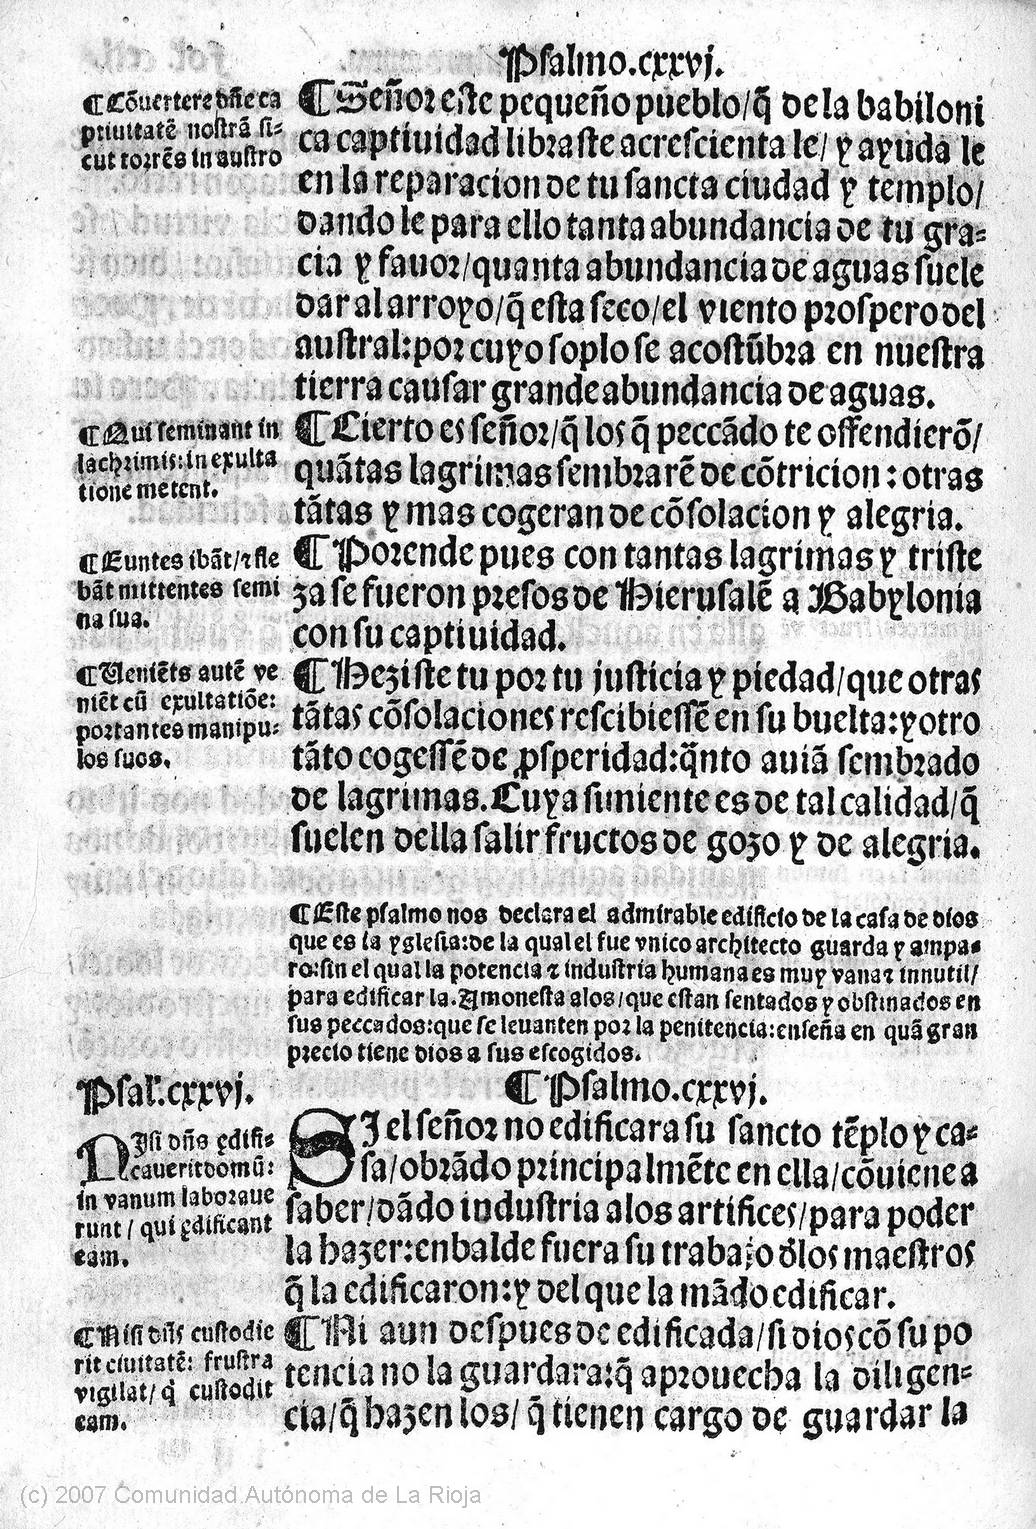 Psalmo.cxxvj.
¶ Cõuertere dñe ca
ptiuitatẽ nostrã si-
cut torrẽs in austro
¶ Señor este pequeño pueblo/q̃ de la babiloni
ca captiuidad libraste acrescienta le/ y ayuda le
en la reparacion de tu sancta ciudad y templo/
dando le para ello tanta abundancia de tu gra-
cia y fauor/quanta abundancia de aguas suele
dar al arroyo/q̃ esta seco/el viento prospero del
austral:por cuyo soplo se acostũbra en nuestra
tierra causar grande abundancia de aguas.
¶ Qui seminant in
lachrimis:in exulta
tione metent.
¶ Cierto es señor/q̃ los q̃ peccãdo te offendierõ/
quãtas lagrimas sembrarẽ de cõtricion : otras
tãtas y mas cogeran de cõsolacion y alegria.
¶ Euntes ibãt/⁊ fle
bãt mittentes semi
na sua.
¶ Porende pues con tantas lagrimas y triste
za se fueron presos de Hierusalẽ a Babylonia
con su captiuidad.
¶ Veniẽts autẽ ve
niẽt cũ exultatiõe:
portantes manipu-
los suos.
¶ Heziste tu por tu justicia y piedad/que otras
tãtas cõsolaciones rescibiessẽ en su buelta:y otro
tãto cogessẽ de ꝓsperidad:q̃nto auiã sembrado
de lagrimas.Cuya simiente es de tal calidad/q̃
suelen della salir fructos de gozo y de alegria.
¶ Este psalmo nos declara el admirable edificio de la casa de dios
que es la yglesia:de la qual el fue vnico architecto guarda y ampa-
ro:sin el qual la potencia ⁊ industria humana es muy vana ⁊ innutil/
para edificar la.Amonesta a los/que estan sentados y obstinados en
sus peccados:que se leuanten por la penitencia:enseña en quã gran
precio tiene dios a sus escogidos.
Psal.cxxvj.
¶ Psalmo.cxxvj.
NIsi dñs ędifi-
cauerit domũ:
in vanum laboraue
runt / qui ędificant
eam.
SI el señor no edificara su sancto tẽplo y ca-
sa/obrãdo principalmẽte en ella/cõuiene a
saber/dãdo industria a los artifices/para poder
la hazer:en balde fuera su trabajo d̃los maestros
q̃ la edificaron:y del que la mãdo edificar.
¶ Nisi dñs custodie
rit ciuitatẽ: frustra
vigilat/ q̃ custodit
eam.
¶ Ni aun despues de edificada/si dios cõ su po
tencia no la guardara:q̃ aprouecha la diligen-
cia/q̃ hazen los/ q̃ tienen cargo de guardar la
(c) 2007 Comunidad Autónoma de La Rioja